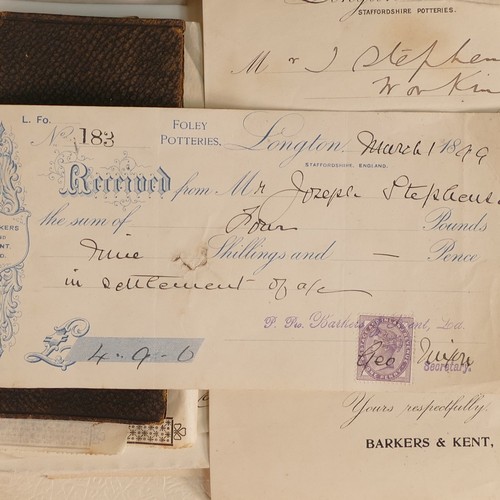 STAFFORDSHIRE POTTERIES.
Mr J Stephen
Workin
L. Fo.
No. 183
FOLEY
POTTERIES,
Longton, March 1 1899
STAFFORDSHIRE, ENGLAND.
Received from Mr Joseph Stephens
the sum of Four Pounds
Nine Shillings and — Pence
in settlement of a/c
P. Pro. Barkers & Kent, Ld.
£ 4 . 9 . 0
Geo Nixon
Secretary.
Yours respectfully.
BARKERS & KENT,